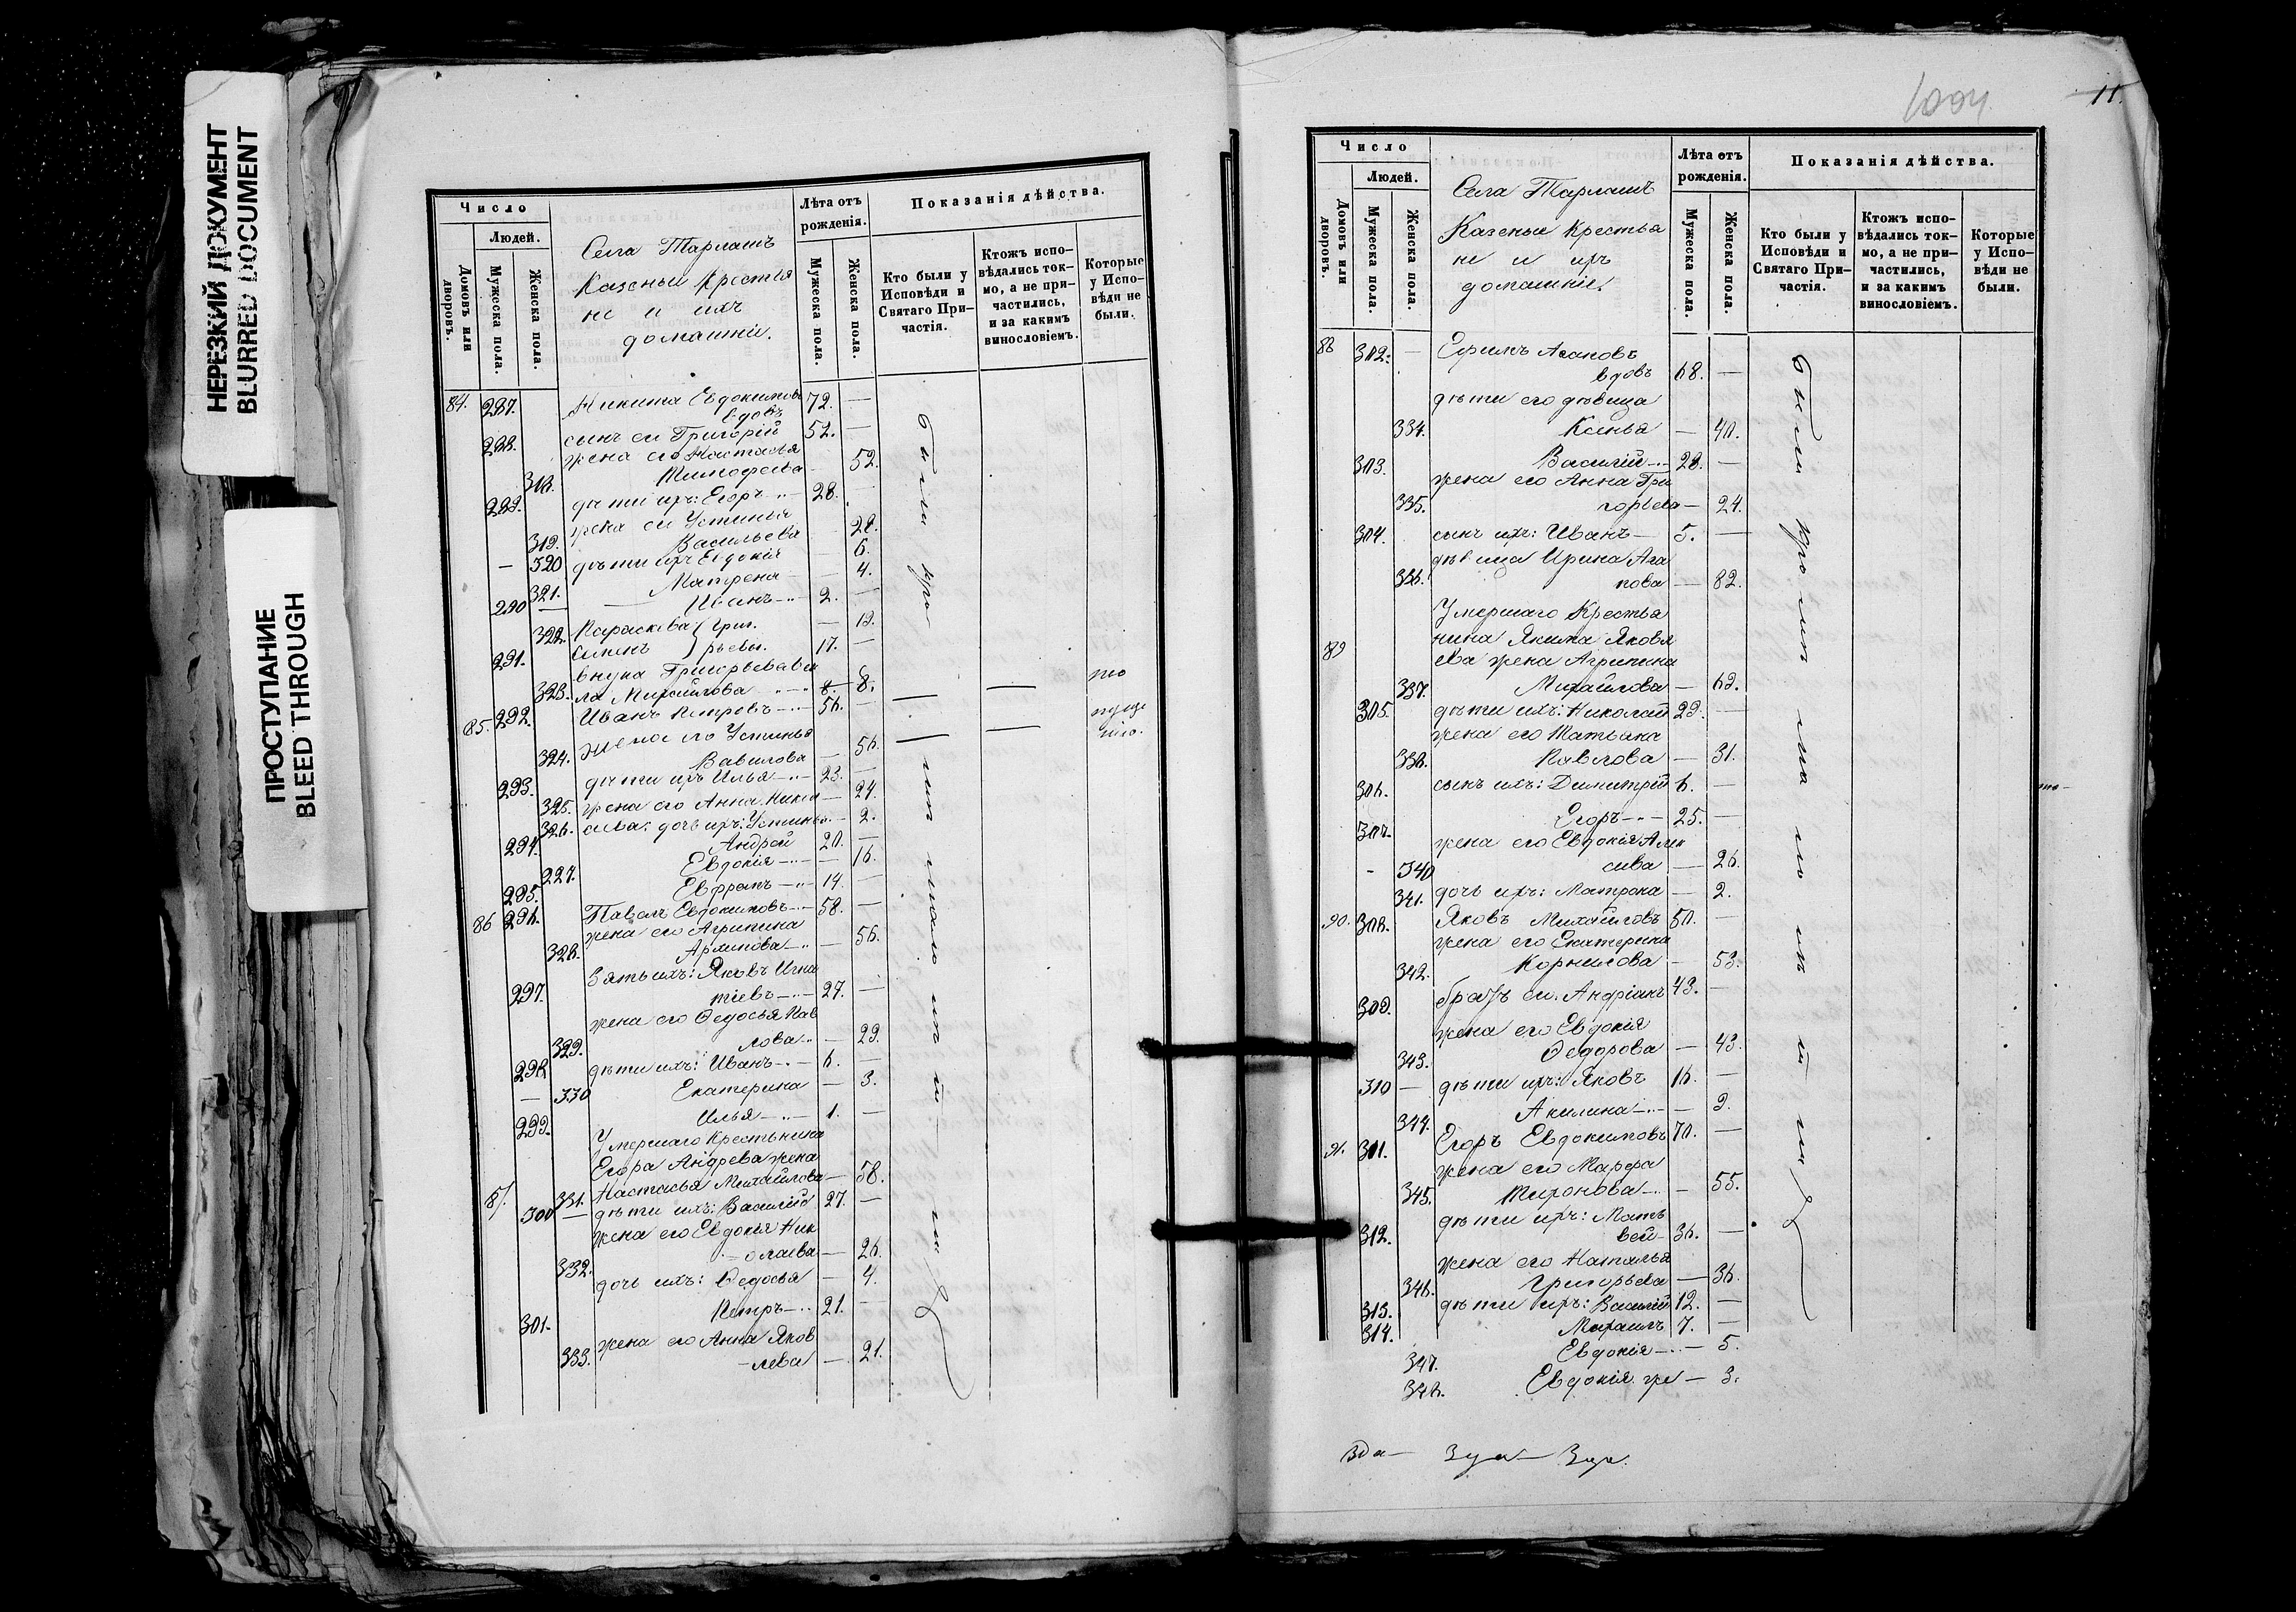 НЕРЕЗКИЙ ДОКУМЕНТ
BLURRED DOCUMENT
ПРОСТУПАНИЕ
BLEED THROUGH
Число
Людей.
Домовъ или дворовъ.
Мужеска пола.
Женска пола.
Села Тарлашъ
Казеныи Крестья
не и ихъ
домашніи.
Лѣта отъ рожденія.
Мужеска пола.
Женска пола.
Показанія дѣйства.
Кто были у Исповѣди и Святаго При-
частія.
Ктожъ испо-
вѣдались ток-
мо, а не при-
частились,
и за какимъ
винословіемъ.
Которые
у Испо-
вѣди не
были.
84. 287. Никита Евдокимовъ
вдовъ 72. —
288. сынъ ево Григорій 52. —
жена его Настасья
318. Тимофеева 52.
289. дѣти ихъ: Егоръ 28. —
жена ево Устинья
319. Васильева 28.
— 320 дѣти ихъ Евдокія 6.
321. Матрена — 4.
290 — Иванъ 2. —
322. Параскева Григ. — 19.
291. Семенъ рьевы. 17. —
внука Григорьева
323. Михайлова 8. 8.
85. 292. Иванъ Петровъ 56. —
жена его Устинья
324. Вавилова — 56.
293. дѣти ихъ Илья 23. —
325. жена его Анна 24.
326. дочь ихъ: Устинья — 2.
294. Андрей 20. —
227. Евдокія — 16.
295. 14. —
86 296. Павелъ Евдокимовъ 58. —
жена его Агрипина
328. — 56.
Зять ихъ: Яковъ Игна
297. тіевъ 27. —
жена его Ѳедосья Пав
329. лова — 29.
298 дѣти ихъ: Иванъ 6. —
— 330 Екатерина — 3.
299. Илья 1. —
Умершаго Крестьнина
Егора Андрева жена
87. 331. Настасья Михайлова — 58.
300 — дѣти ихъ: Василій 27. —
жена его Евдокія Ник
332. олаева — 26.
дочь ихъ: Ѳедосья — 4.
301. Петръ 21. —
жена его Анна Яков
333. лева — 21.
были
11.
Число
Людей.
Домовъ или дворовъ.
Мужеска пола.
Женска пола.
Села Тарлашъ
Казеныи Крестья
не и ихъ
домашніи.
Лѣта отъ рожденія.
Мужеска пола.
Женска пола.
Показанія дѣйства.
Кто были у Исповѣди и Святаго При-
частія.
Ктожъ испо-
вѣдались ток-
мо, а не при-
частились,
и за какимъ
винословіемъ.
Которые
у Испо-
вѣди не
были.
88 302. — Ефимъ Агаповъ
вдовъ 68. —
дѣти его дѣвица
334. Ксенья — 40.
303. Василій 28. —
жена его Анна Гри
335. горьева — 24.
304. сынъ ихъ: Иванъ 5. —
дѣвица Ирина Ага
336. пова — 82.
Умершаго Крестья
89 нина Якима Яковл
ева жена Агрипина
337. Михайлова — 62.
305. дѣти ихъ: Николай 29. —
жена его Татьяна
338. Павлова — 31.
306. сынъ ихъ: Димитрій 6. —
307. Егоръ 25. —
жена его Евдокія Алек
340 сива — 26.
341. дочь ихъ: Матрона — 2.
90. 308. Яковъ Михайловъ 50. —
жена его Екатерина
342. Корнилова — 53.
309. братъ ево Андріанъ 43. —
жена его Евдокія
343. Ѳедорова — 43.
310 — дѣти ихъ: Яковъ 16. —
344. Акилина — 9.
91. 311. Егоръ Евдокимовъ 70. —
жена его Марфа
345. Миронова — 55.
дѣти ихъ: Мать
312. вей 36. —
жена его Наталья
346. Григорьева — 36.
313. дѣти ихъ: Василій 12. —
314. Михаилъ 7. —
347. Евдокія — 5.
348. Евдокія — 3.
были